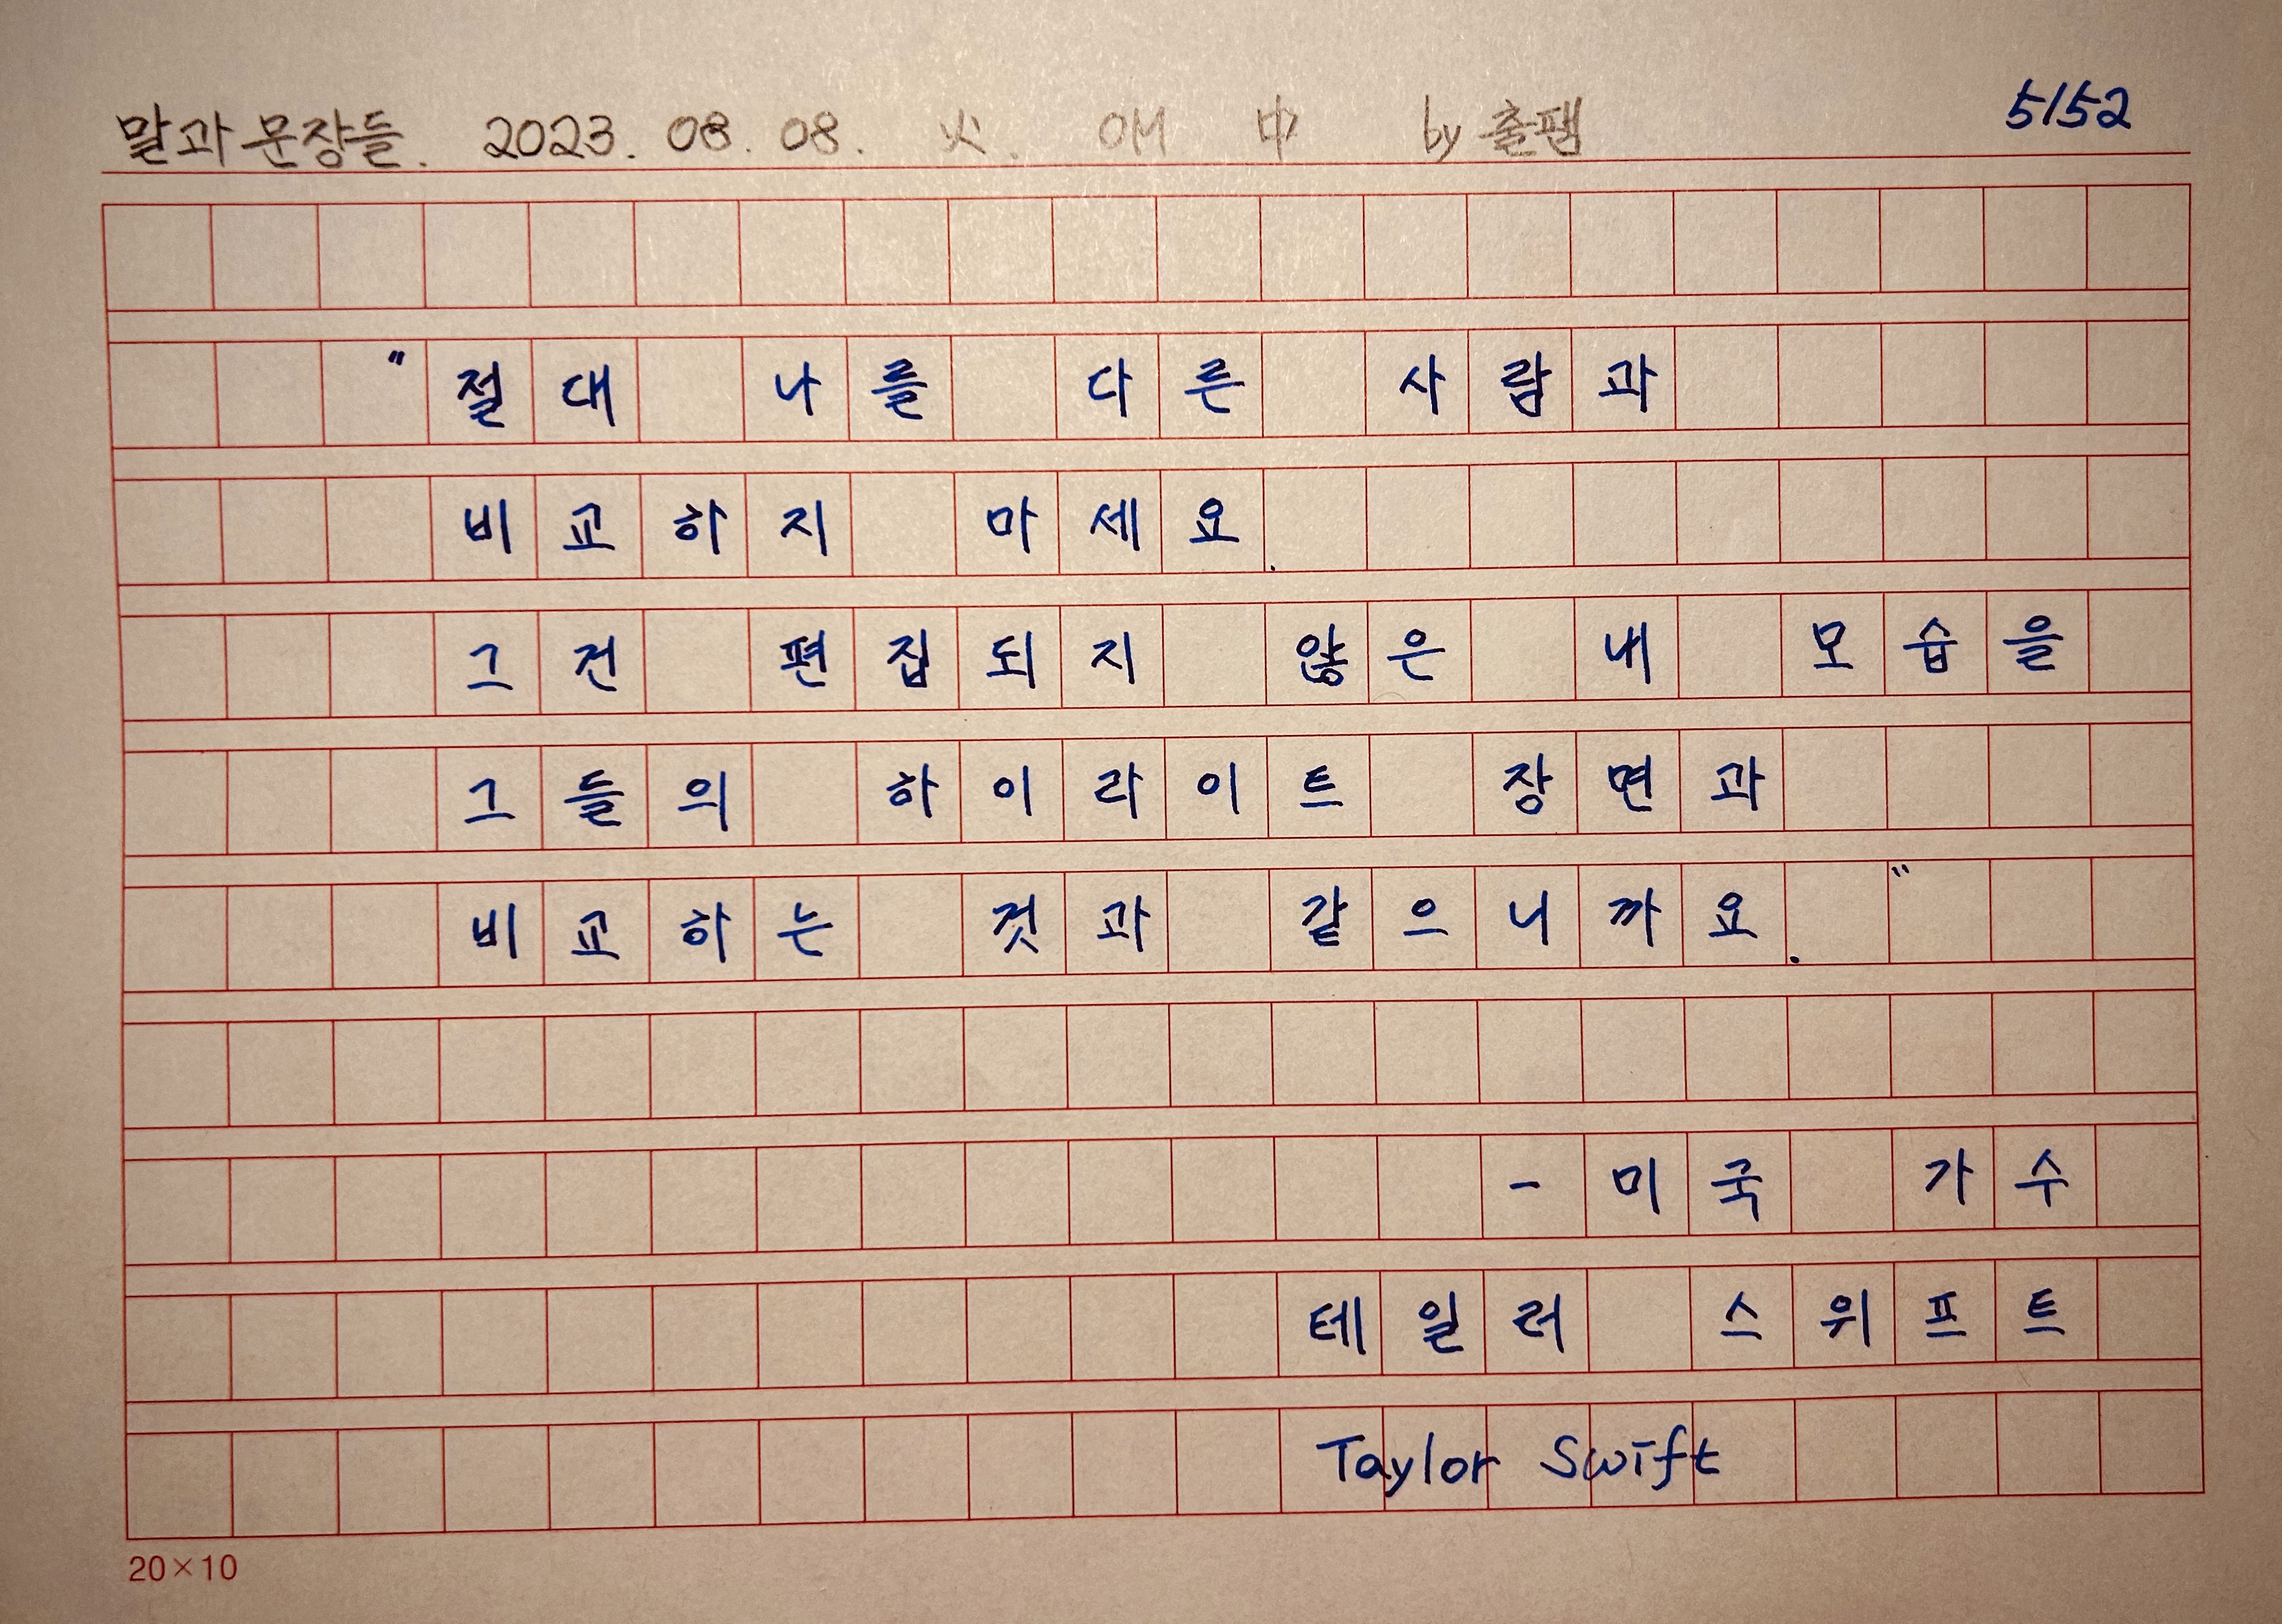 말과 문장들. 2023. 08. 08. 火. OM 中 by 출팸 5152
"절대 나를 다른 사람과
비교하지 마세요.
그건 편집되지 않은 내 모습을
그들의 하이라이트 장면과
비교하는 것과 같으니까요."
- 미국 가수
테일러 스위프트
Taylor Swift
20×10